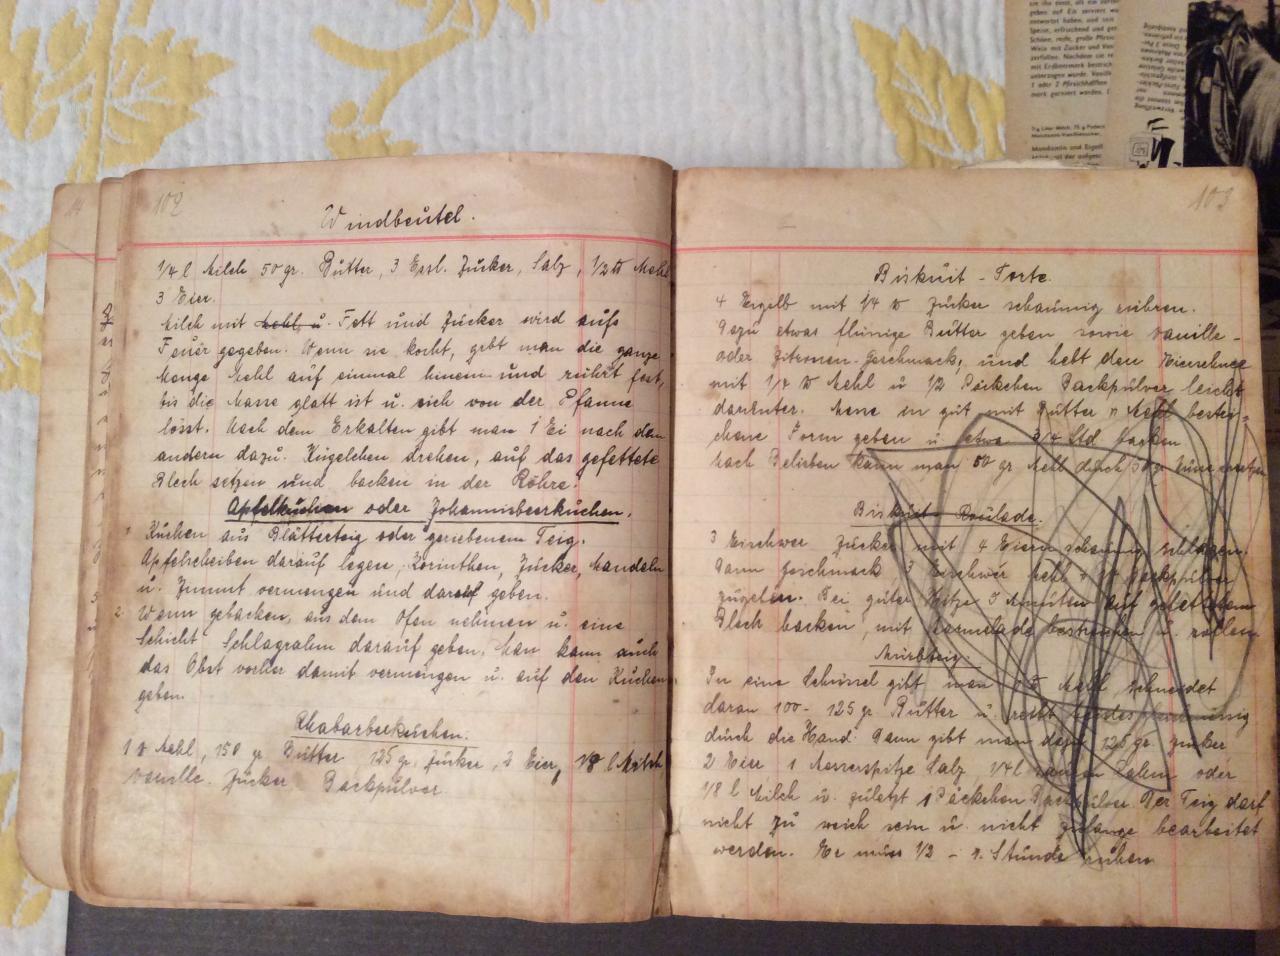 102
Windbeutel.
1/4 l Milch 50 gr. Butter, 3 Essl. Zucker, Salz, 1/2 ℔ Mehl
3 Eier.
Milch mit Mehl u. Fett und Zucker wird aufs
Feuer gegeben. Wenn sie kocht, gebt man die ganze
Menge Mehl auf einmal hinein und rührt fest,
bis die Masse glatt ist u. sich von der Pfanne
lösst. Nach dem Erkalten gibt man 1 Ei nach dem
andern dazu. Kügelchen drehen, auf das gefettete
Blech setzen und backen in der Röhre.
Apfelkuchen oder Johannisbeerkuchen.
1. Kuchen aus Blätterteig oder geriebenem Teig.
Apfelscheiben darauf legen, Korinthen, Zucker, Mandeln
u. Zimmt vermengen und darauf geben.
2. Wenn gebacken, aus dem Ofen nehmen u. eine
Schicht Schlagrahm darauf geben. Man kann auch
das Obst vorher damit vermengen u. auf den Kuchen
geben.
Rhabarberkuchen.
1 ℔ Mehl, 150 gr Butter 125 gr. Zucker, 2 Eier, 1/8 l Milch
Vanille. Zucker Backpulver
103
Biskuit - Torte.
4 Eigelb mit 1/4 ℔ Zucker schaumig rühren.
Dazu etwas flüssige Butter geben sowie Vanille-
oder Zitronen-Geschmack, und hebt den Eierschnee
mit 1/4 ℔ Mehl u 1/2 Päckchen Backpulver leicht
darunter. Masse in gut mit Butter u Mehl bestri-
chene Form geben u etwa 3/4 Std backen
Nach Belieben kann man 50 gr Mehl durch 50 gr
Biskuit - Roulade.
3 Eischwer Zucker mit 4 Eiern schaumig schlagen.
Dann Geschmack, 3 Eischwer Mehl Backpulver
zugeben. Bei guter Hitze Minuten auf gefettetem
Blech backen, mit Marmelade bestreichen u. rollen
Mürbteig.
In eine Schüssel gibt man ℔ Mehl schneidet
daran 100 - 125 gr Butter u. reibt beides
durch die Hand. Dann gibt man dazu 125 gr Zucker
2 Eier 1 Messerspitze Salz 1/4 l sauren Rahm oder
1/8 l Milch u. zuletzt 1 Päckchen Backpulver. Der Teig darf
nicht zu weich sein u. nicht zulange bearbeitet
werden. Er muss 1/2 - 1 Stunde ruhen